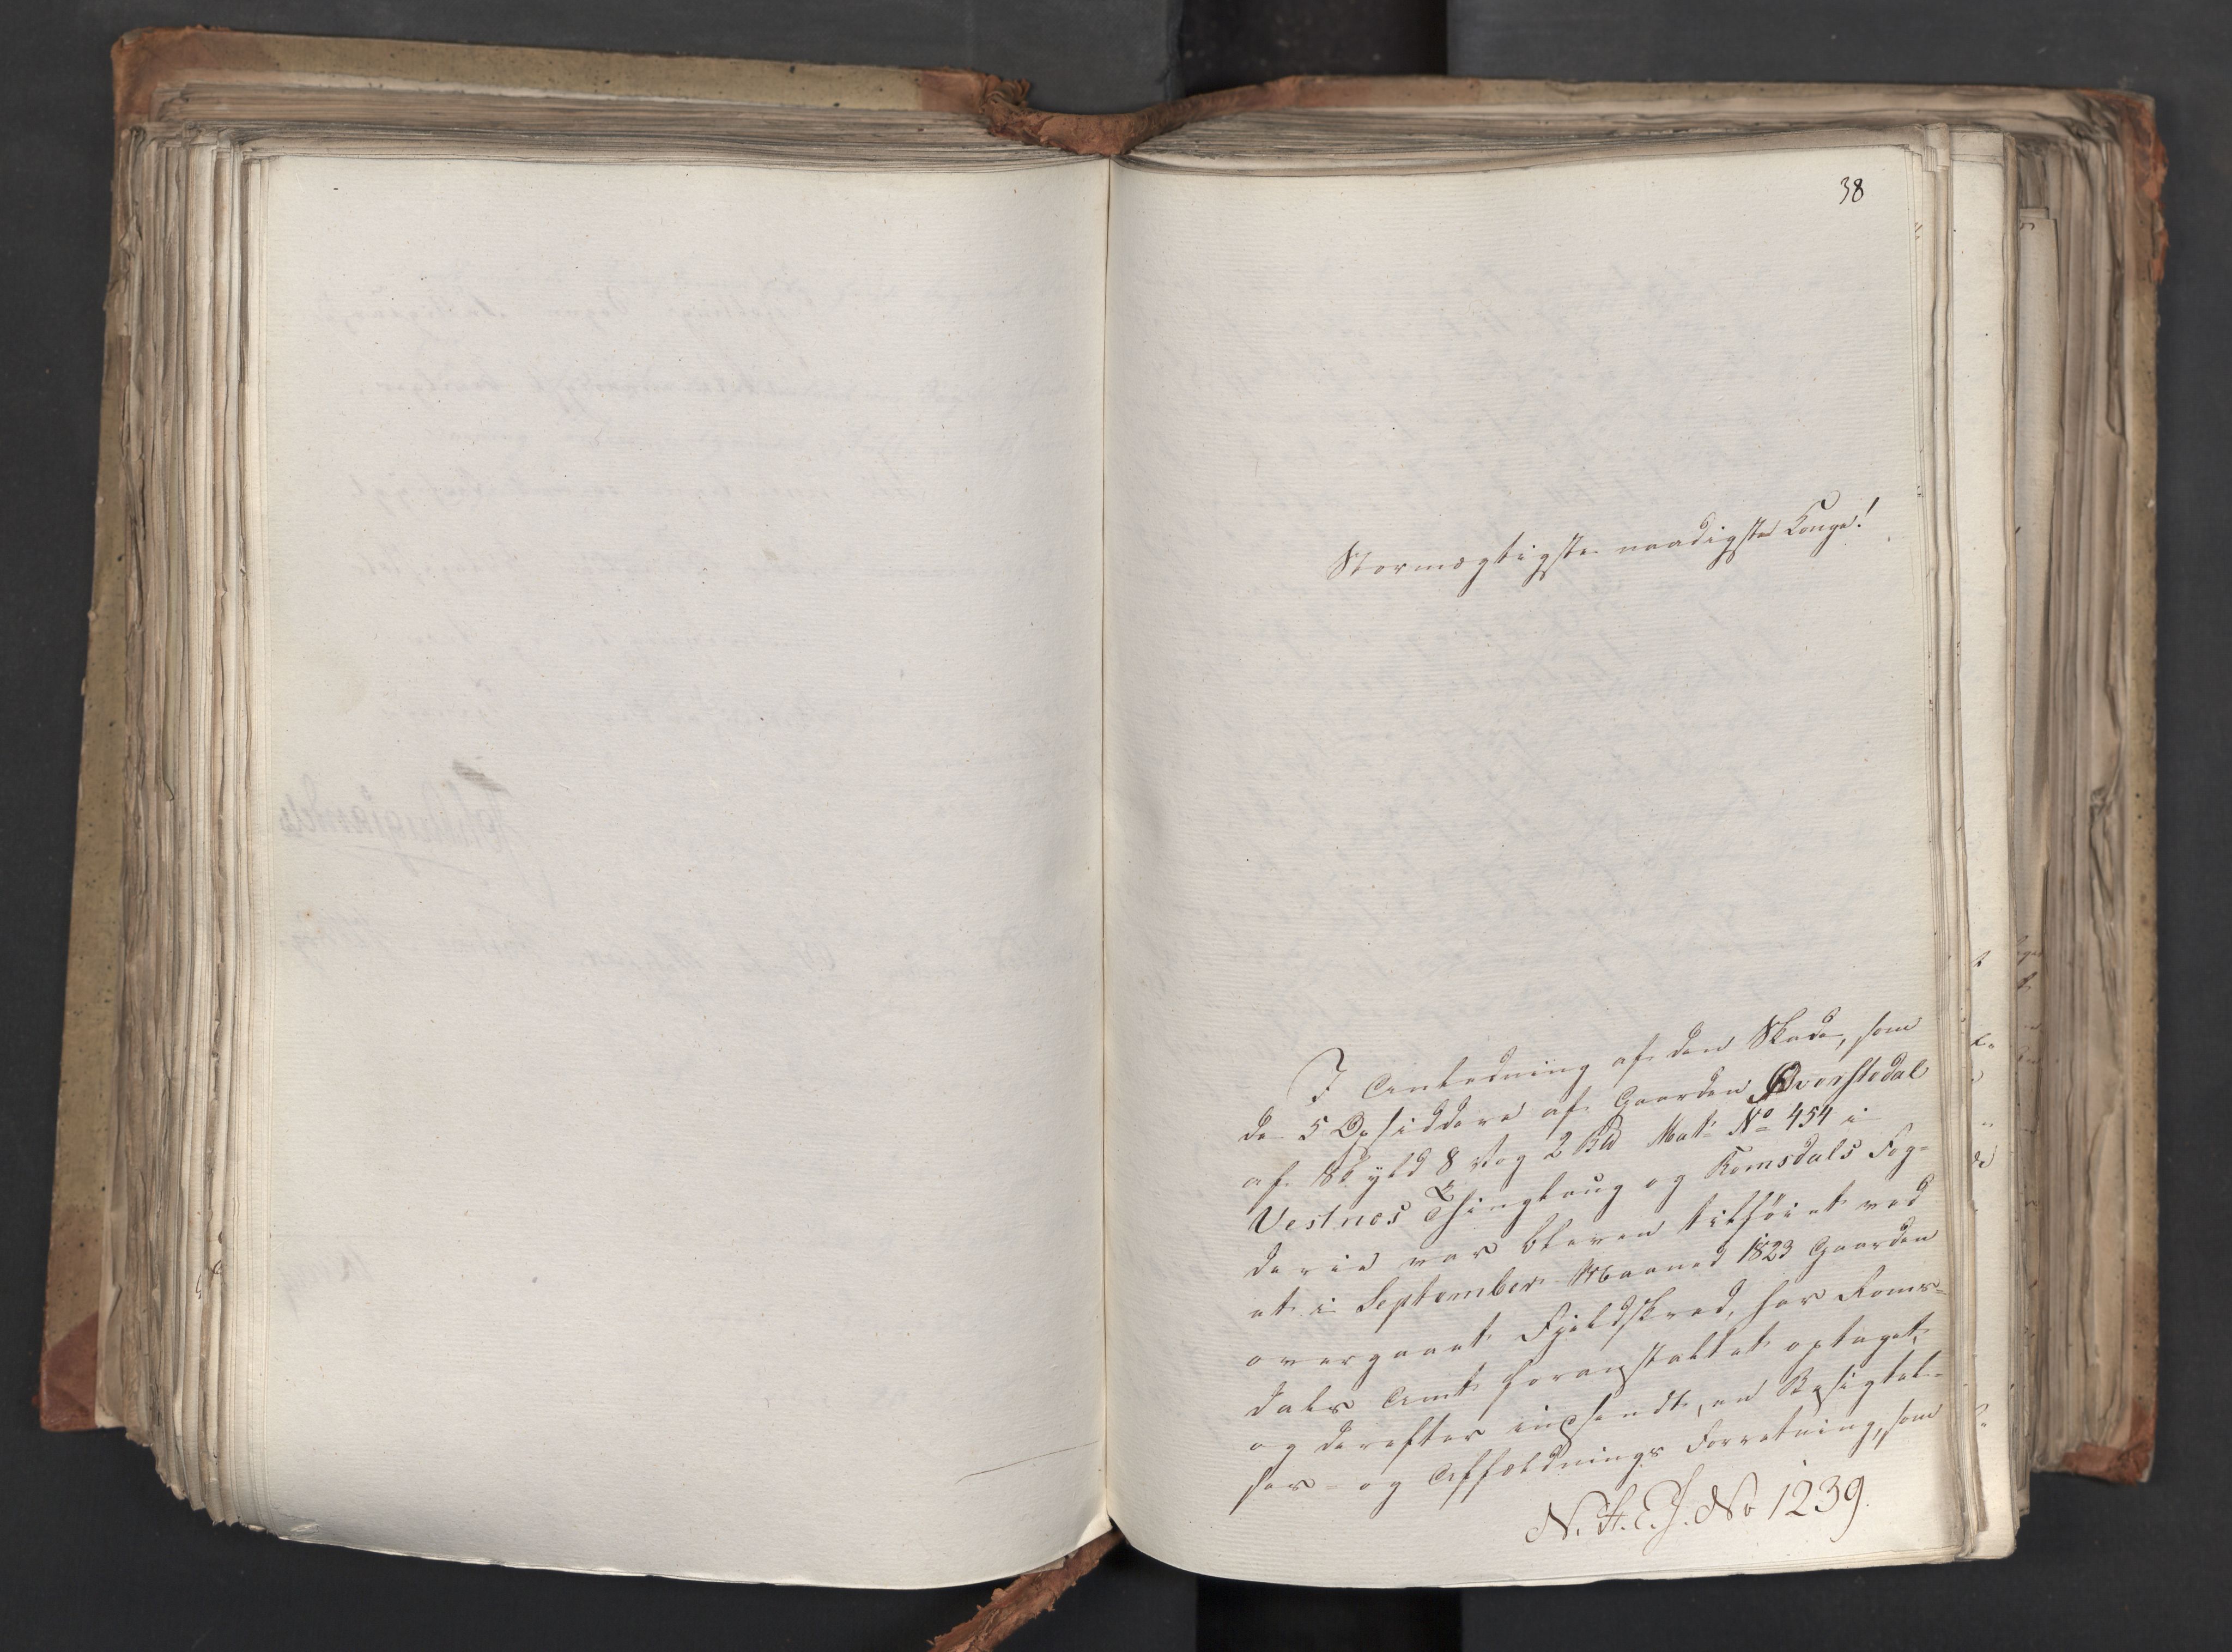 38
Stormægtigste naadigste Konge!
I Anledning af den Skade, som
de 5 Opsiddere af Gaarden Øverstedal
af Skyld 8 Vog 2 Mat: No 454 i
Vestnes Thinglaug og Romsdals Fog-
derie var bleven tilføiet ved
et i September Maaned 1823 Gaarden
overgaaet Fjeldskred, har Roms-
dals Amt foranstaltet optaget,
og derefter indsendt, en Besigtel-
ses- og Affældnings Forretning, som
N. H. E. J. No 1239.